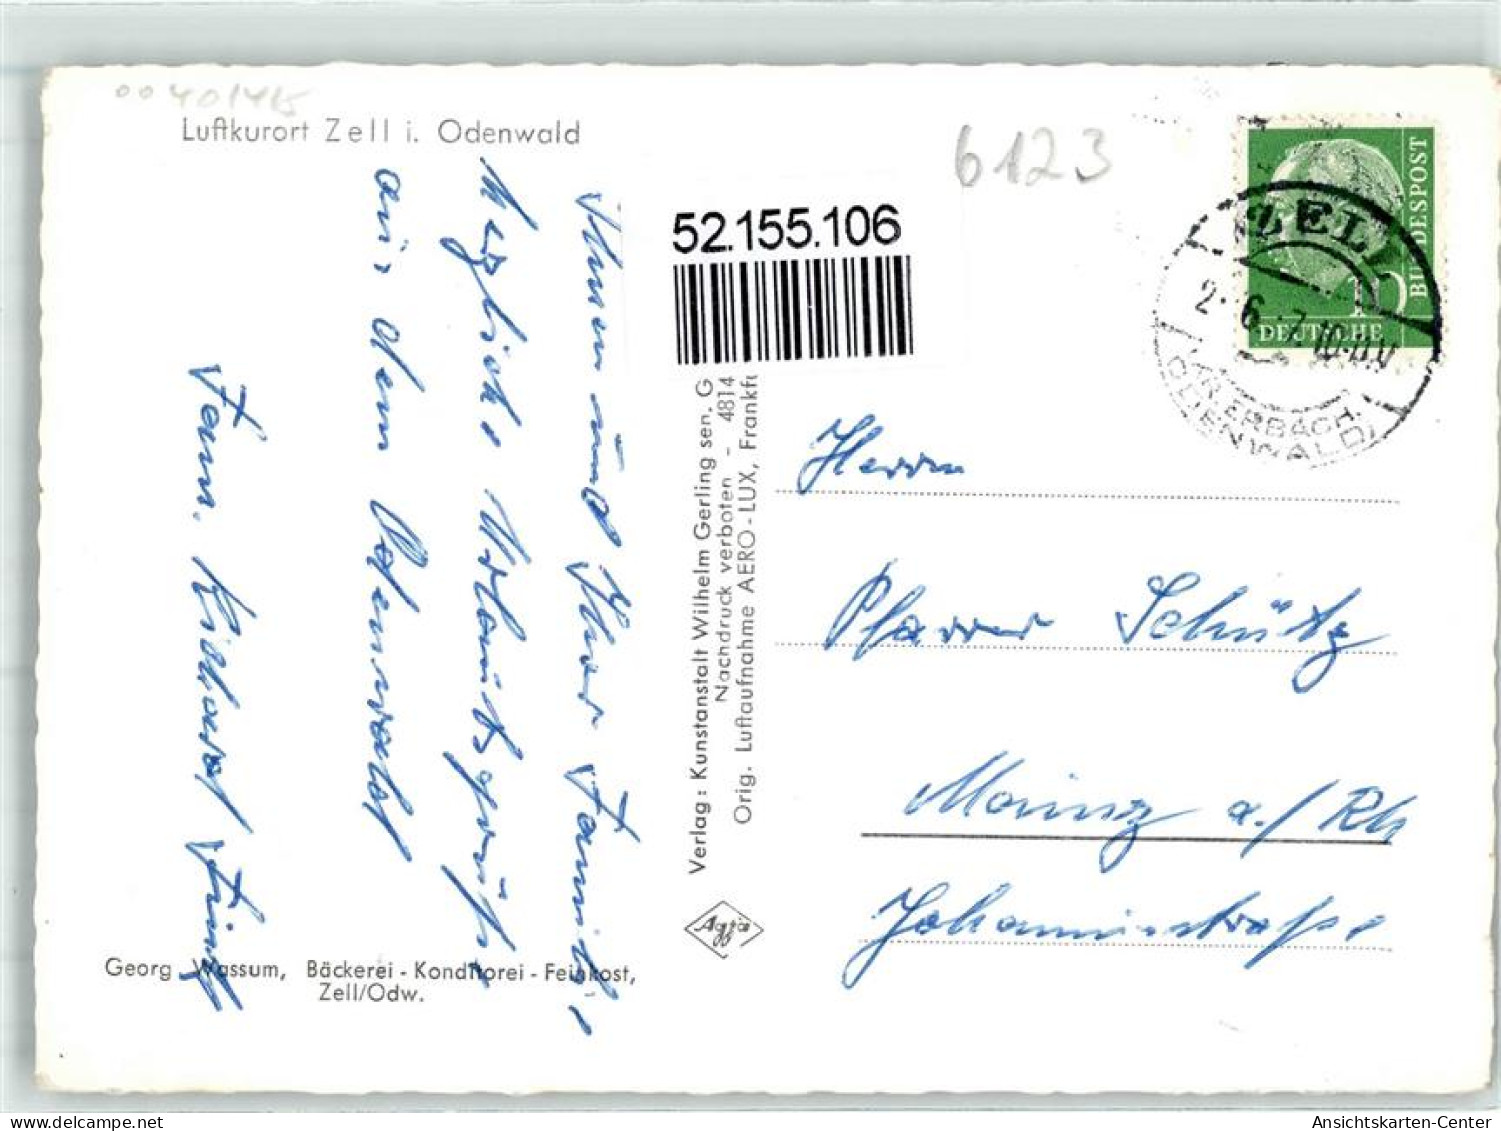 00401415
Luftkurort Zell i. Odenwald
6123
52.155.106
Ihnen und Ihrer Familie
herzliche Urlaubsgrüße
aus dem Odenwald
Fam.
Georg Wassum, Bäckerei - Konditorei - Feinkost,
Zell/Odw.
Verlag: Kunstanstalt Wilhelm Gerling sen. G
Nachdruck verboten - 4814
Orig. Luftaufnahme AERO-LUX, Frankfu
Agfa
DEUTSCHE
BUNDESPOST
10
ZELL
2.-6.
ERBACH,
ODENWALD)
Herrn
Pfarrer Schütz
Mainz a./Rh
Johannisstraße
Ansichtskarten-Center